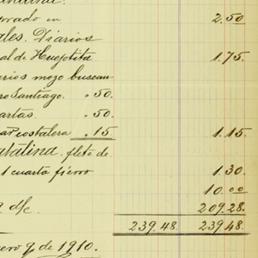 orado en 2.50
ales. Diarios
al de Huejotita 1.75
erios mozo buscan
ro Santiago. " 50.
artas " 50.
costalera " 15 1.15
aratina. flete de
1 cuarto fierro 1.30
10.00
d/c. 209.28.
239.48 239.48.
ero 9 de 1910.